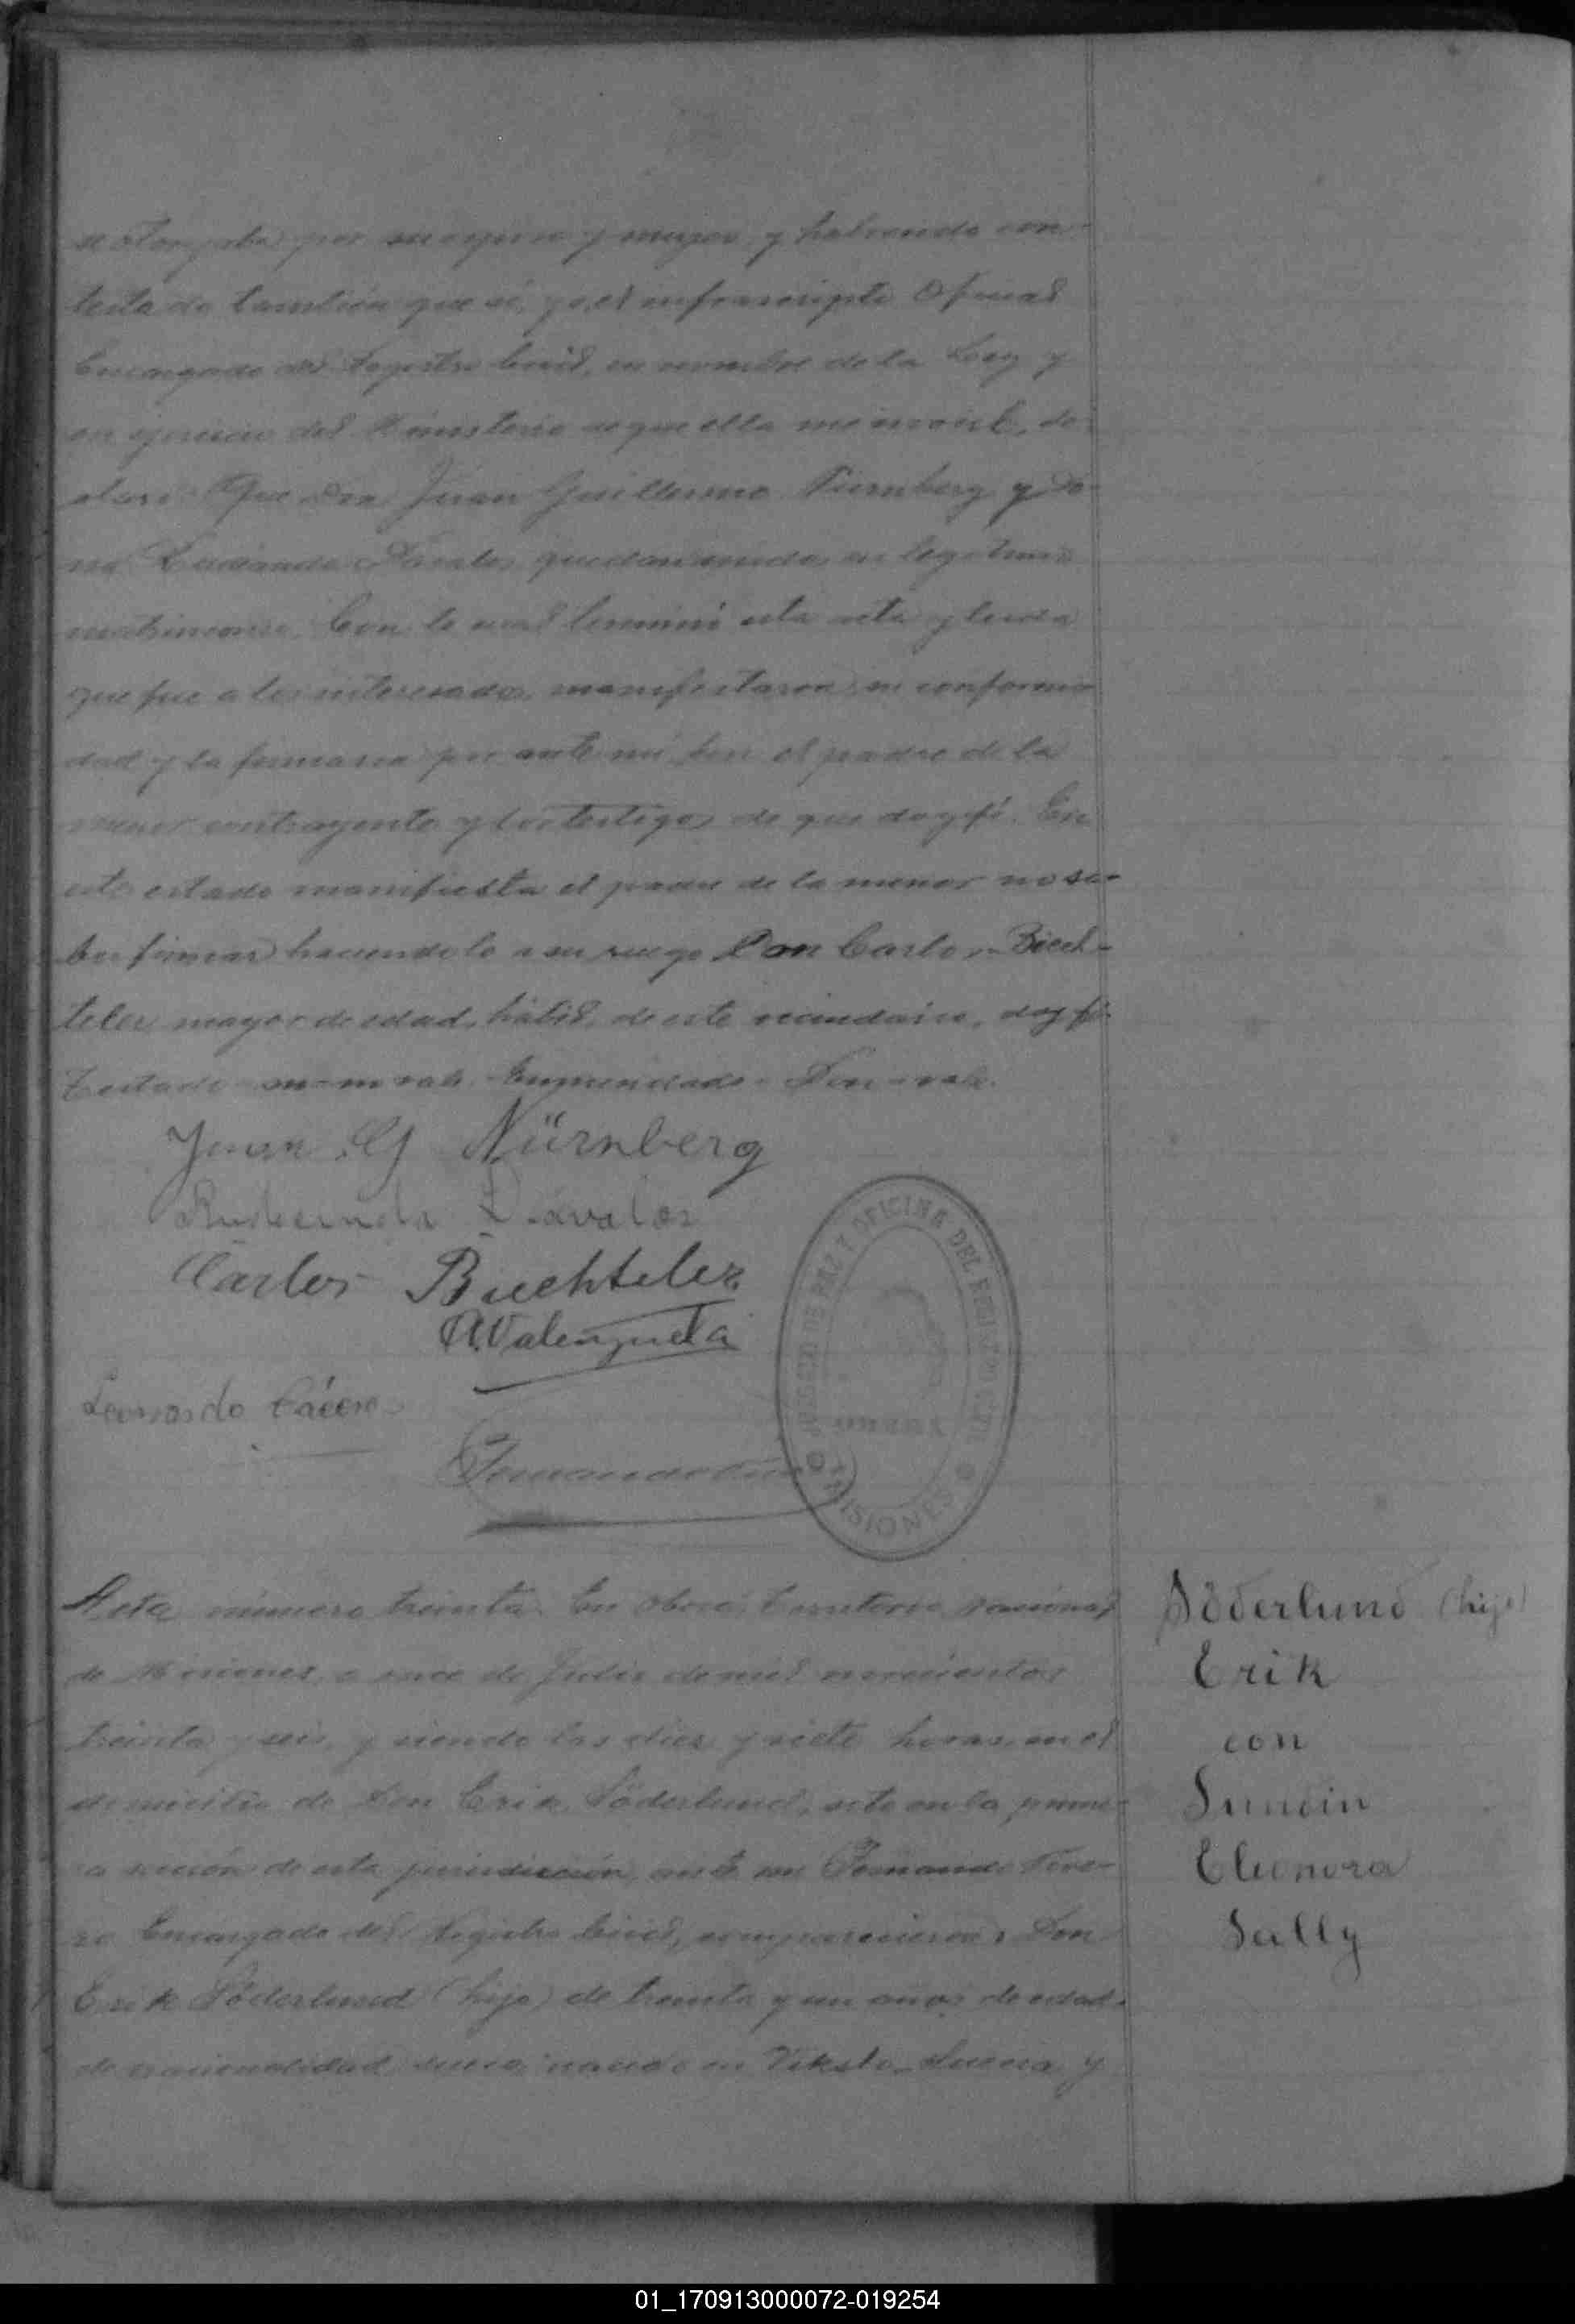 se otorgaba por su esposo y mujer y habiendo con-
testado también que sí, yo, el infrascripto Oficial
Encargado del Registro Civil, en nombre de la Ley y
en ejercicio del Ministerio de que ella me inviste, de-
claro: Que Don Juan Guillermo Nürnberg y Do-
ña Dávalos, quedan unidos en legítimo
matrimonio. Con lo cual terminó esta acta y leída
que fue a los interesados, manifestaron su conformi-
dad y la firmaron por ante mí, con el padre de la
menor contrayente y los testigos de que doy fé. En
este estado manifiesta el padre de la menor no sa-
ber firmar haciendolo a su ruego Don Carlos Biech-
teler mayor de edad, hábil, de este vecindario, doy fé.
Testado vale. Enmendado - Don - vale.
Juan G Nürnberg
Dávalos
Carlos Biechteler
A. Valenzuela
Leonardo Cáceres
JUZGADO DE PAZ Y OFICINA DEL REGISTRO CIVIL
MISIONES
Acta número treinta. En Oberá, Territorio Nacional
de Misiones, a once de Julio de mil novecientos
treinta y seis, y siendo las diez y siete horas, en el
domicilio de Don Erik Söderlund, sito en la prime-
ra sección de esta jurisdicción, ante mí Fernando
Encargado del Registro Civil, comparecieron: Don
Erik Söderlund (hijo) de treinta y un años de edad,
de nacionalidad sueco, nacido en Suecia y
Söderlund (hijo)
Erik
con
Sundin
Eleonora
Sally
01_170913000072-019254